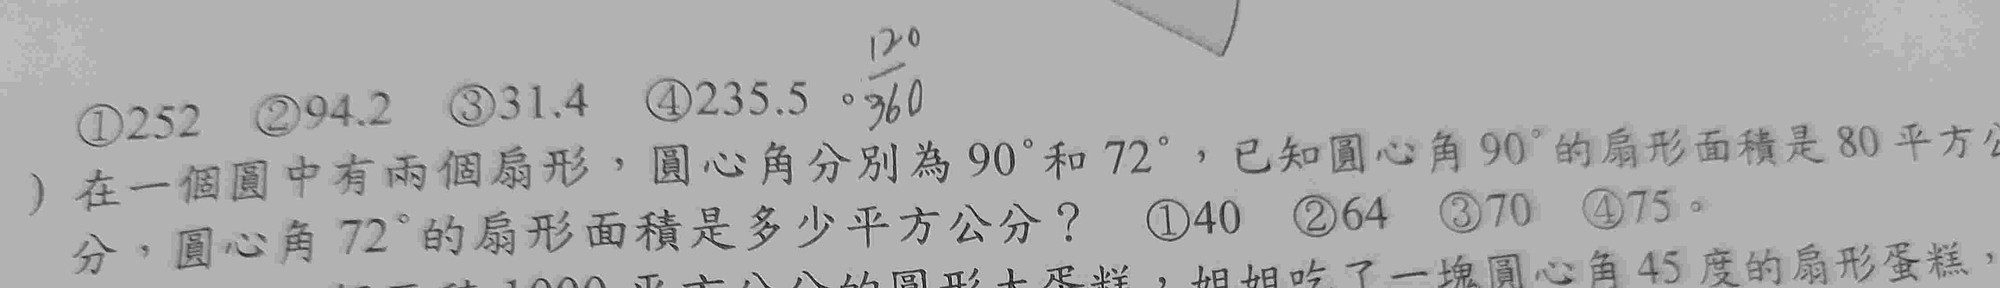 120
360
①252 ②94.2 ③31.4 ④235.5。
）在一個圓中有兩個扇形，圓心角分別為 90°和 72°，已知圓心角 90°的扇形面積是 80 平方公
分，圓心角 72°的扇形面積是多少平方公分？ ①40 ②64 ③70 ④75。
1000 平方公分的圓形大蛋糕，姐姐吃了一塊圓心角 45 度的扇形蛋糕，